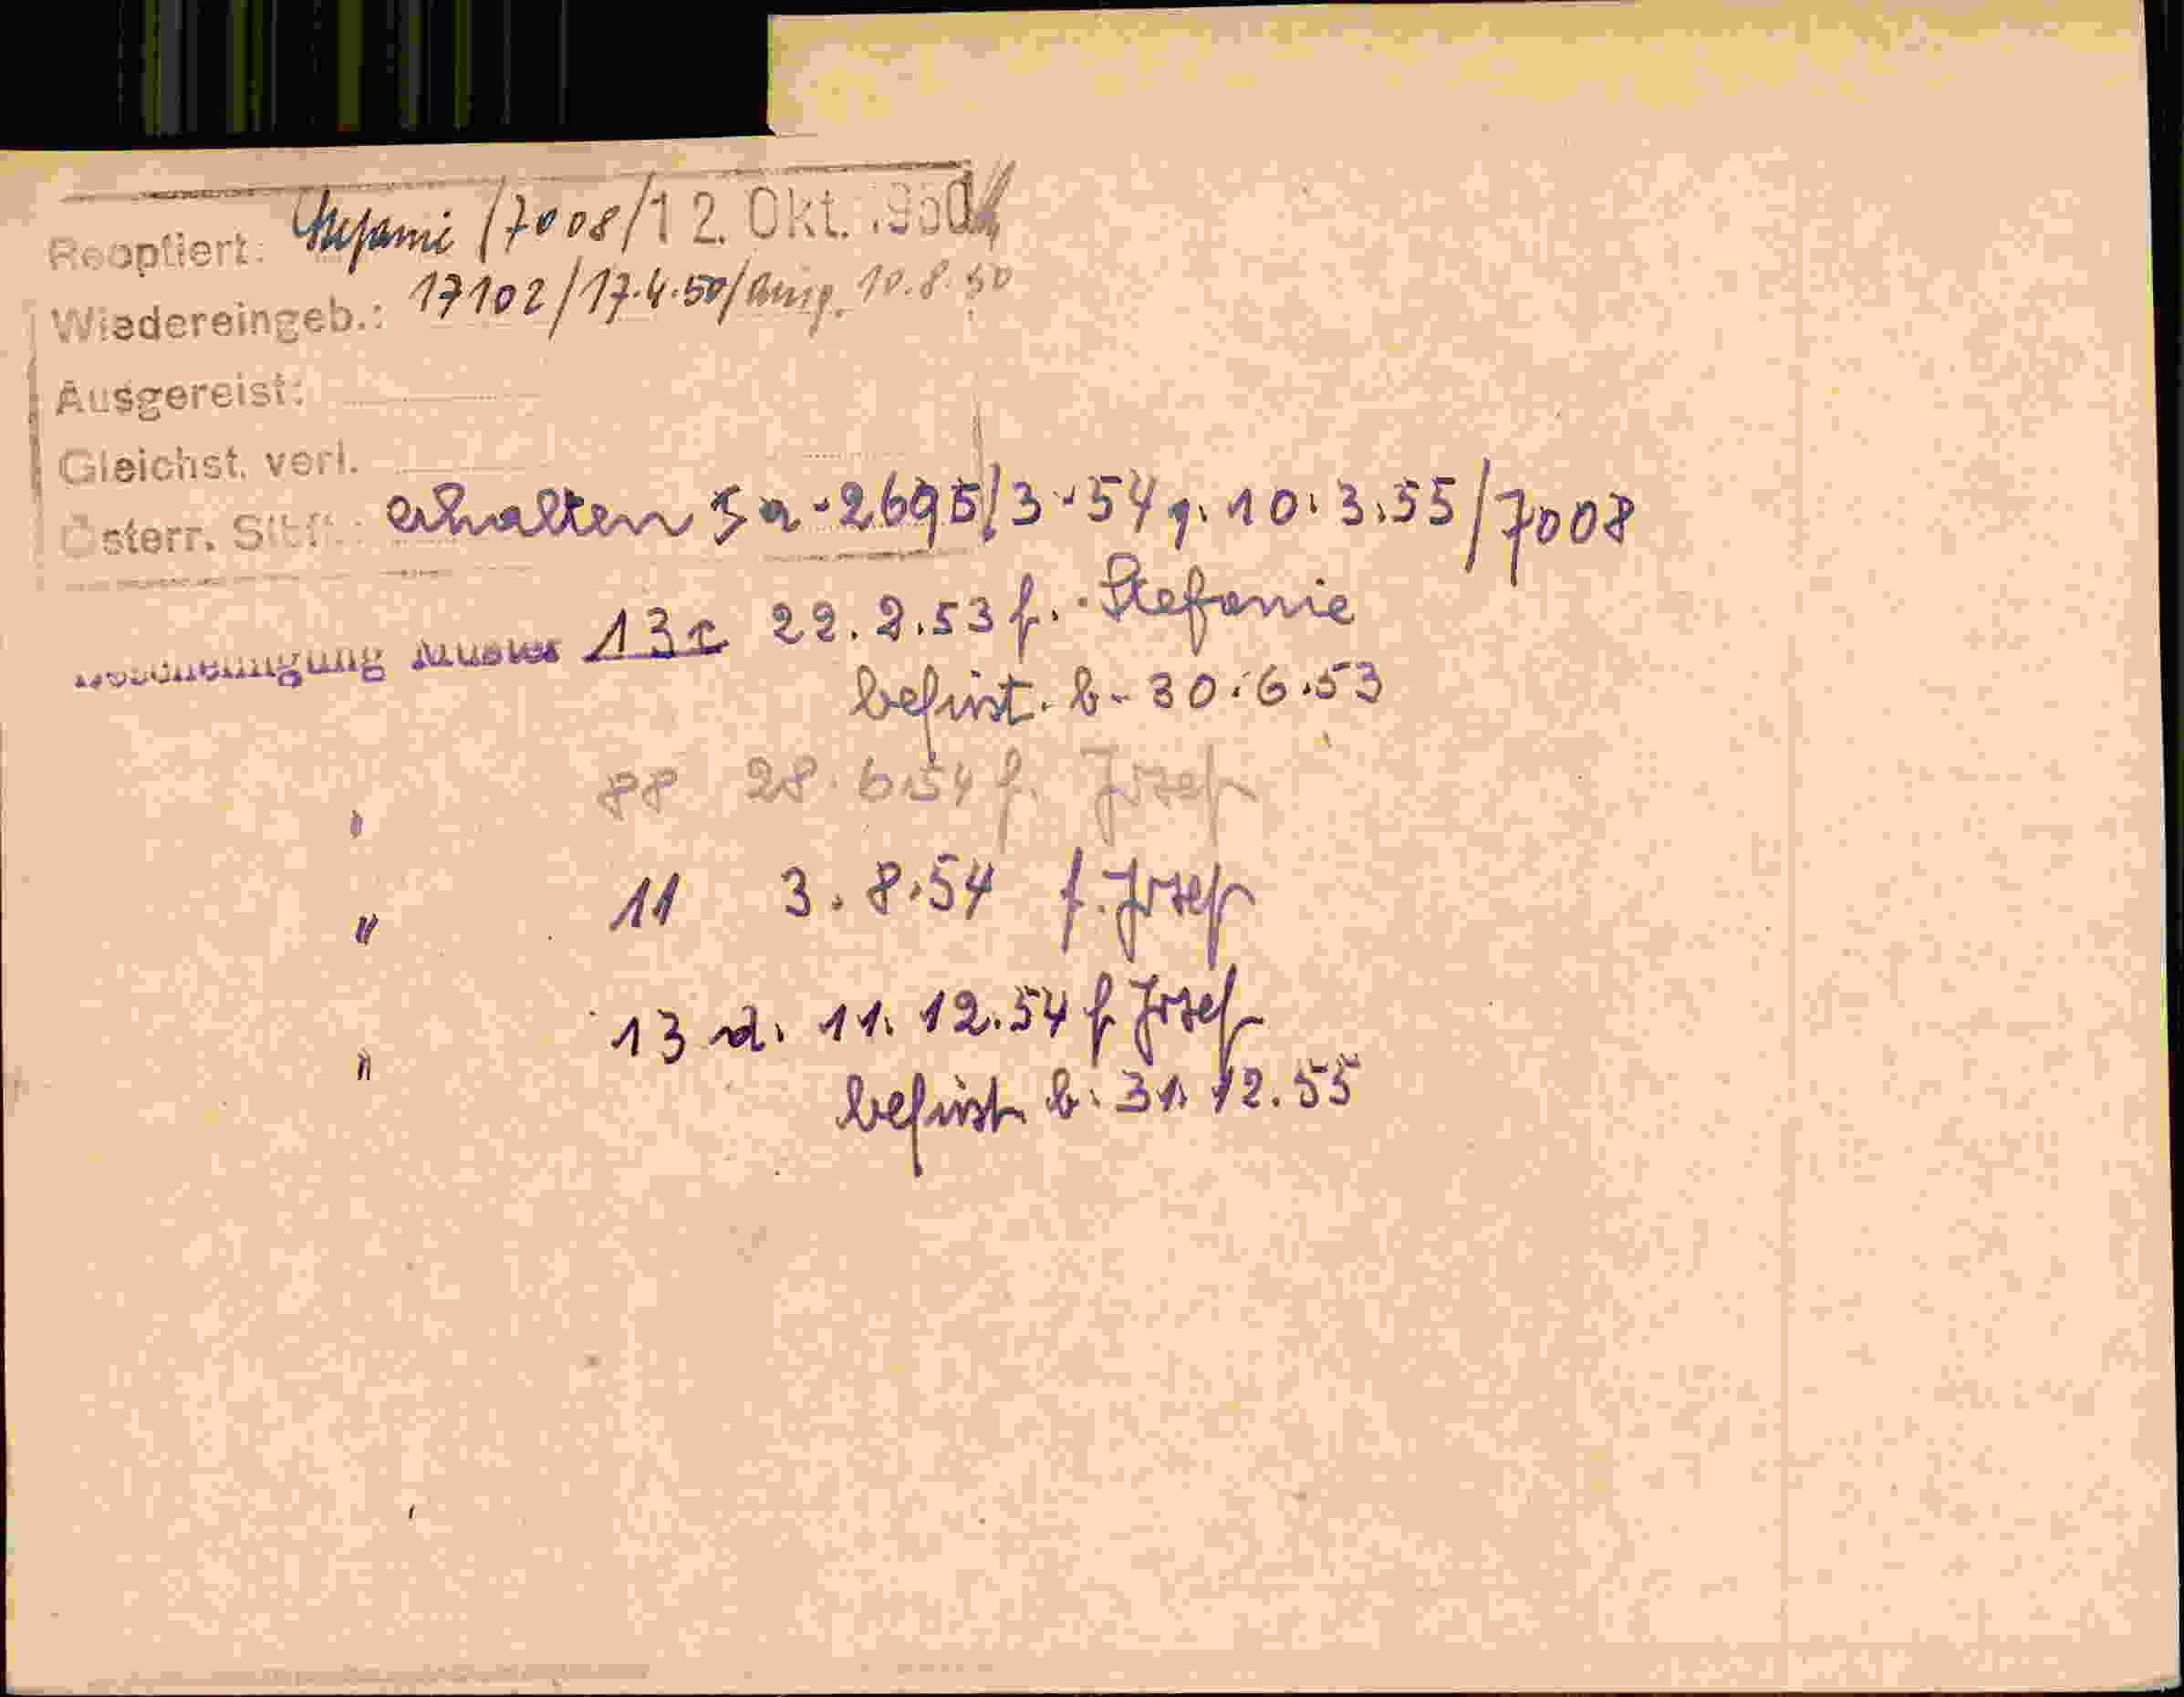 Reoptiert: Stefanie /7008/12. Okt. 1950
Wiedereingeb.: 17102/17.4.50/Ausg. 10.8.50
Ausgereist:
Gleichst. verl.
Österr. Stbf.: erhalten 5a-2695/3-54 g. 10.3.55/7008
Bescheinigung Muster 13c 22.2.53 f. Stefanie
befrist. b. 30.6.53
" 88 28.6.54 f. Josef
" 11 3.8.54 f. Josef
" 13 d. 11.12.54 f Josef
befrist b. 31.12.55